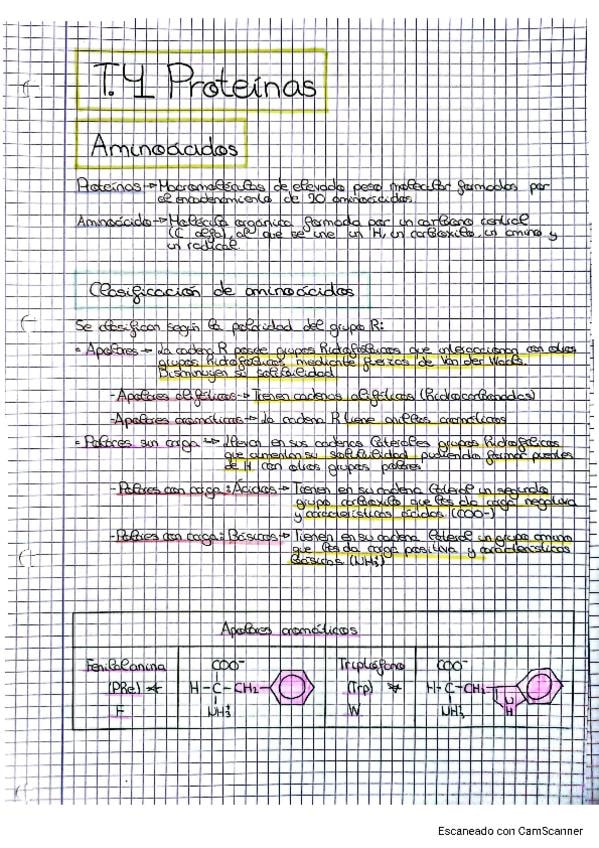 T.4 Proteínas
Aminoácidos
Proteínas → Macromoléculas de elevado peso molecular formados por
el encadenamiento de 20 aminoácidos.
Aminoácido → Molécula orgánica formada por un carbono central
(C alfa), al que se une un H, un carboxilo, un amino y
un radical.
Clasificación de aminoácidos
Se clasifican según la polaridad del grupo R:
• Apolares → la cadena R posee grupos hidrofóbicos que interaccionan con otros
grupos hidrofóbicos mediante fuerzas de Van der Waals.
Disminuyen su solubilidad
- Apolares alifáticos → Tienen cadenas alifáticas (hidrocarbonadas)
- Apolares aromáticos → la cadena R tiene anillos aromáticos
• Polares sin carga → llevan en sus cadenas laterales grupos hidrofílicos
que aumentan su solubilidad pudiendo formar puentes
de H con otros grupos polares
- Polares con carga: Ácidos → Tienen en su cadena lateral un segundo
grupo carboxilo que les da carga negativa
y características ácidas (COO-)
- Polares con carga: Básicos → Tienen en su cadena lateral un grupo amino
que les da carga positiva y características
básicas (NH₃)
Apolares aromáticos
Fenilalanina
(Phe) *
F
COO⁻
H-C-CH₂-
NH₃⁺
Triptófano
(Trp) *
W
COO⁻
H-C-CH₂
NH₃⁺
N
H
Escaneado con CamScanner